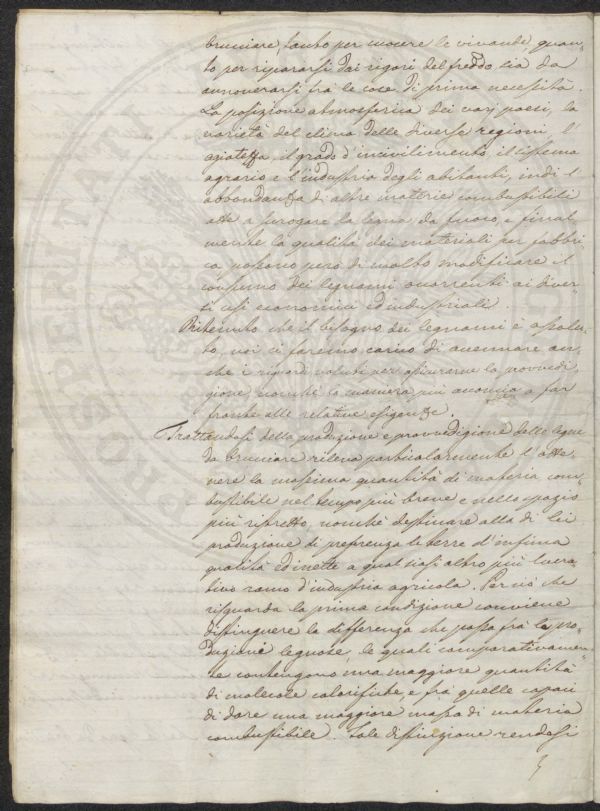 bruciare, tanto per cuocere le vivande, quan-
to per ripararsi dai rigori del freddo sia da
annoverarsi fra le cose di prima necessità.
La posizione atmosferica dei varj paesi, la
varietà del clima delle diverse regioni, l'
agiatezza, il grado d'incivilimento, il sistema
agrario e l'industria degli abitanti, indi l'
abbondanza di altre materie combustibili
atte a surogare la legna da fuoco, e final
mente la qualità dei materiali per fabbri
ca, possono però di molto modificare il
consumo dei legnami occorrenti ai diver
si usi economici ed industriali.
Ritenuto che il bisogno dei legnami è assolu-
to, noi ci faremo carico di accennare an-
che i riguardi voluti per assicurarne la provvedi
gione, nonchè la maniera più acconcia a far
fronte alle relative esigenze.
Trattandosi della produzione e provvedigione delle legne
da bruciare rileva particolarmente l'otte
nere la massima quantità di materia com-
bustibile nel tempo più breve e nello spazio
più ristretto, nonchè destinare alla di lei
produzione di preferenza le terre d'infima
qualità ed inette a qualsiasi altro più lucra
tivo ramo d'industria agricola. Per ciò che
risguarda la prima condizione conviene
distinguere la differenza che passa fra le pro-
duzioni legnose, le quali comparativamen-
te contengono una maggiore quantità
di molecole calorifiche, e fra quelle capaci
di dare una maggiore massa di materia
combustibile. Tale distinzione rendesi
PROSPERITATI